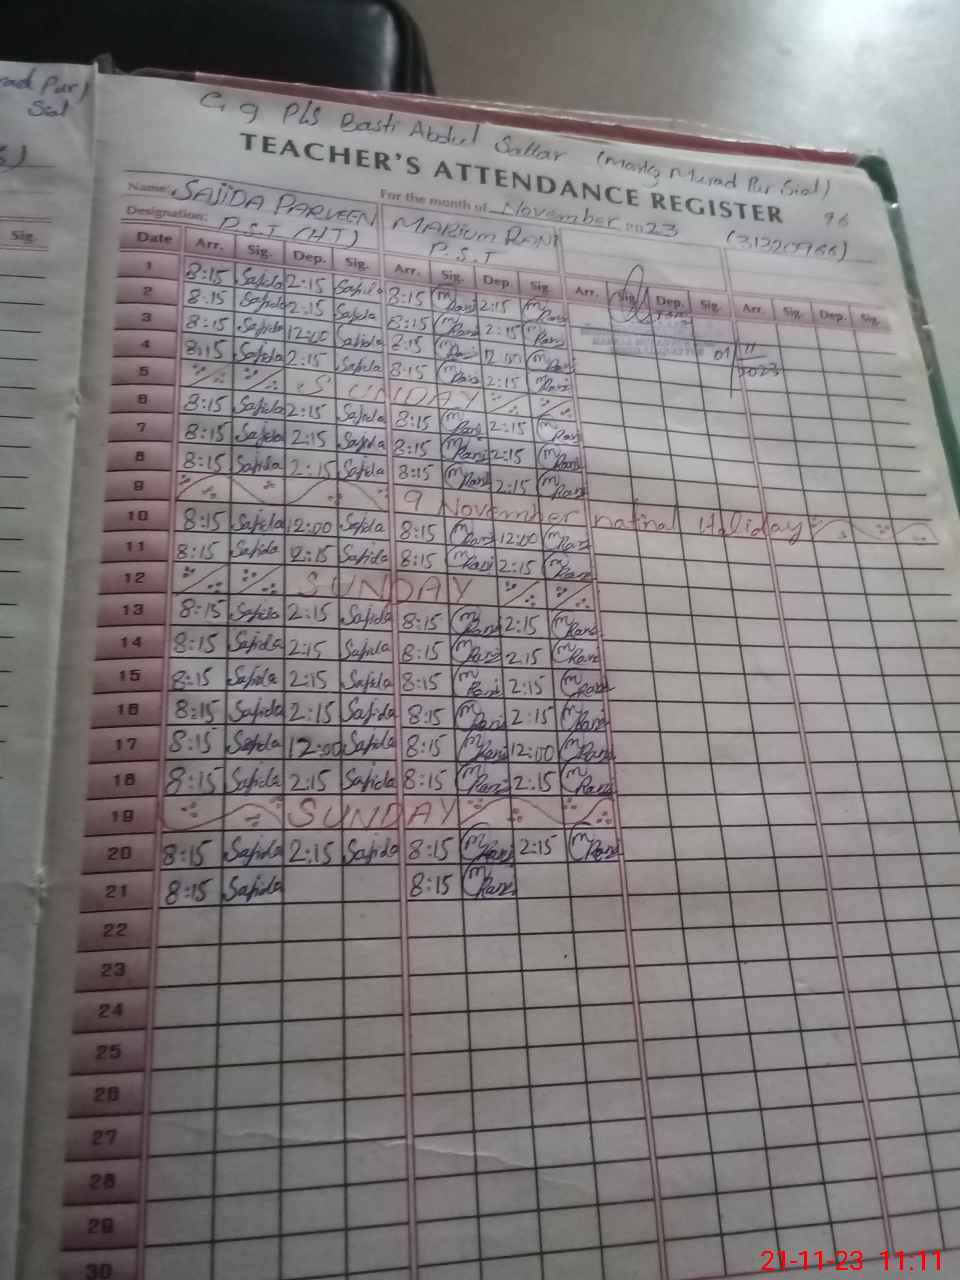 rad Pur)
Sial
Sig.
G. g P/S Basti Abdul Sattar (Markz Murad Pur Sial)
TEACHER'S ATTENDANCE REGISTER 96
Name: SAJIDA PARVEEN For the month of November 2023 (31320966)
Designation: P.S.T (H.T) MARIUM RANI P.S.T
Date Arr. Sig. Dep. Sig. Arr. Sig. Dep. Sig. Arr. Sig. Dep. Sig. Arr. Sig. Dep. Sig.
1 8:15 Sajida 2:15 Sajida 8:15 M Rani 2:15 M Rani
2 8:15 Sajida 2:15 Sajida 8:15 M Rani 2:15 M Rani
3 8:15 Sajida 12:00 Sajida 8:15 M Rani 12:00 M Rani 01/11/2023
4 8:15 Sajida 2:15 Sajida 8:15 M Rani 2:15 M Rani
5 SUNDAY
6 8:15 Sajida 2:15 Sajida 8:15 M Rani 2:15 M Rani
7 8:15 Sajida 2:15 Sajida 8:15 M Rani 2:15 M Rani
8 8:15 Sajida 2:15 Sajida 8:15 M Rani 2:15 M Rani
9 9 November natinal Holiday
10 8:15 Sajida 12:00 Sajida 8:15 M Rani 12:00 M Rani
11 8:15 Sajida 2:15 Sajida 8:15 M Rani 2:15 M Rani
12 SUNDAY
13 8:15 Sajida 2:15 Sajida 8:15 M Rani 2:15 M Rani
14 8:15 Sajida 2:15 Sajida 8:15 M Rani 2:15 M Rani
15 8:15 Sajida 2:15 Sajida 8:15 M Rani 2:15 M Rani
16 8:15 Sajida 2:15 Sajida 8:15 M Rani 2:15 M Rani
17 8:15 Sajida 12:00 Sajida 8:15 M Rani 12:00 M Rani
18 8:15 Sajida 2:15 Sajida 8:15 M Rani 2:15 M Rani
19 SUNDAY
20 8:15 Sajida 2:15 Sajida 8:15 M Rani 2:15 M Rani
21 8:15 Sajida 8:15 M Rani
22
23
24
25
26
27
28
29
30
21-11-23 11:11